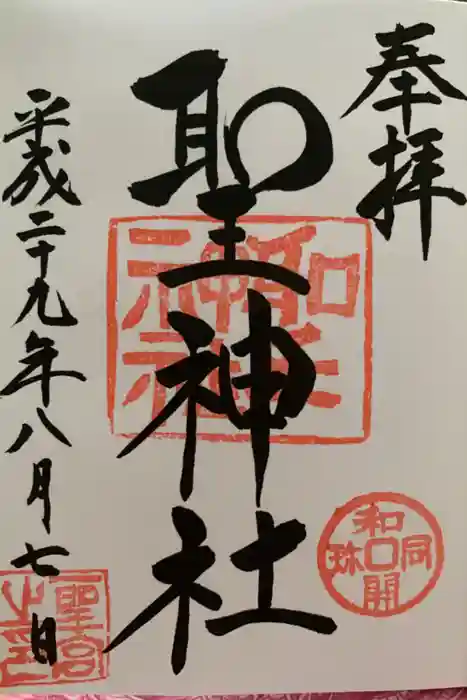 奉拝
聖神社
平成二十九年八月七日
聖神社
和同開珎